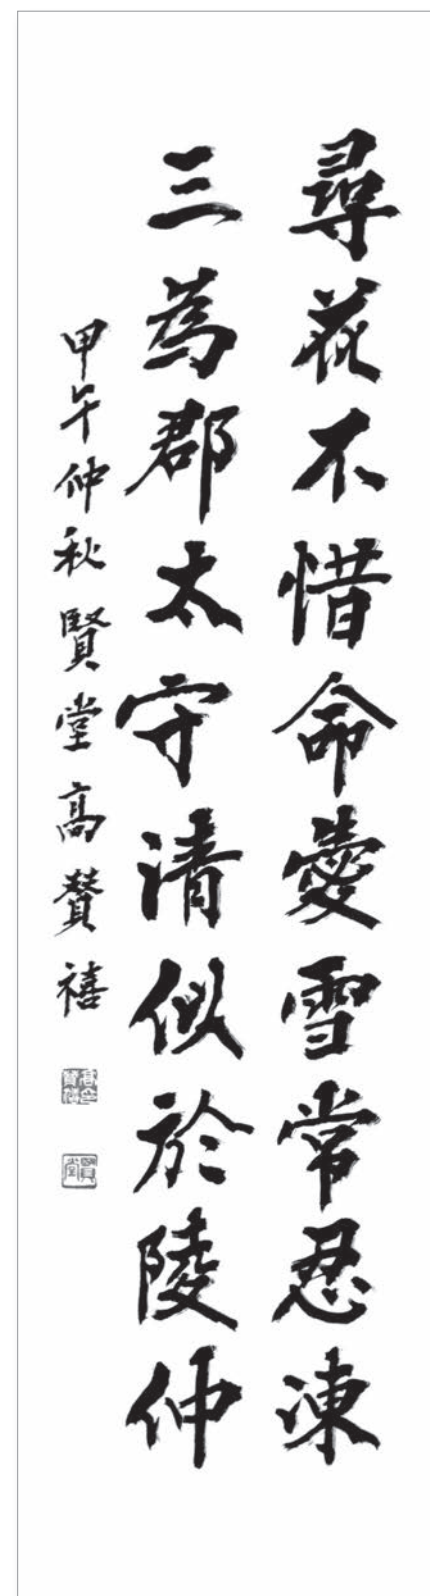 尋花不惜命愛雪常忍凍
三為郡太守清似於陵仲
甲午仲秋賢堂高贊禧